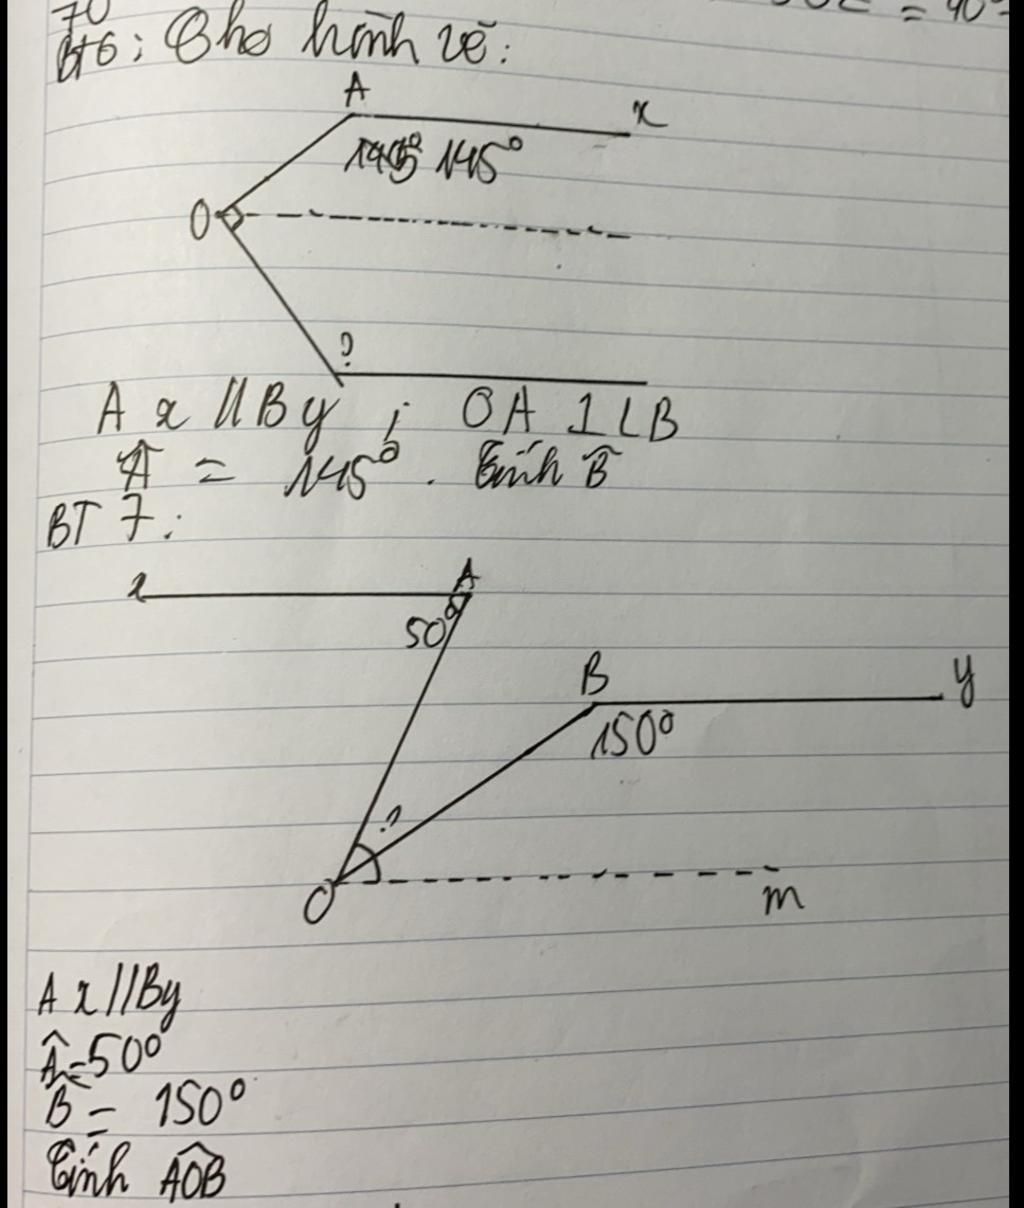 70
= 90°
BT6: Cho hình vẽ:
A
x
145°
O
?
Ax // By ; OA ⊥ LB
Â = 145°. Tính B̂
BT 7:
x
A
50°
B
y
150°
?
O
m
Ax // By
Â = 50°
B̂ = 150°
Tính AOB